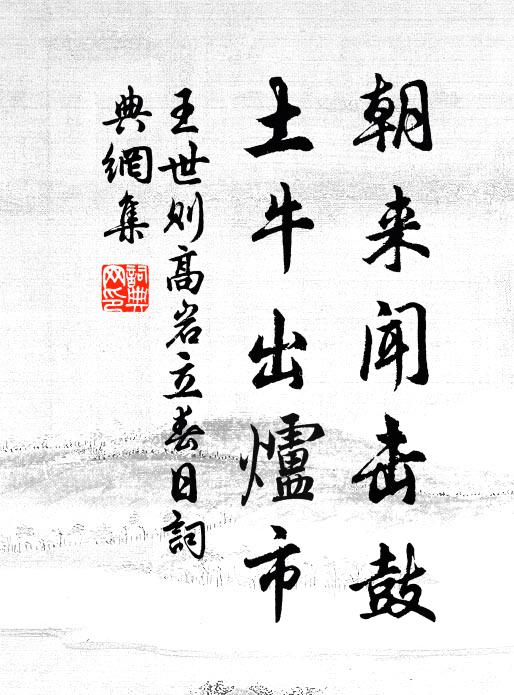 朝来闻击鼓
土牛出爐市
王世则高岩立春日詞
典網集
詞典
网印